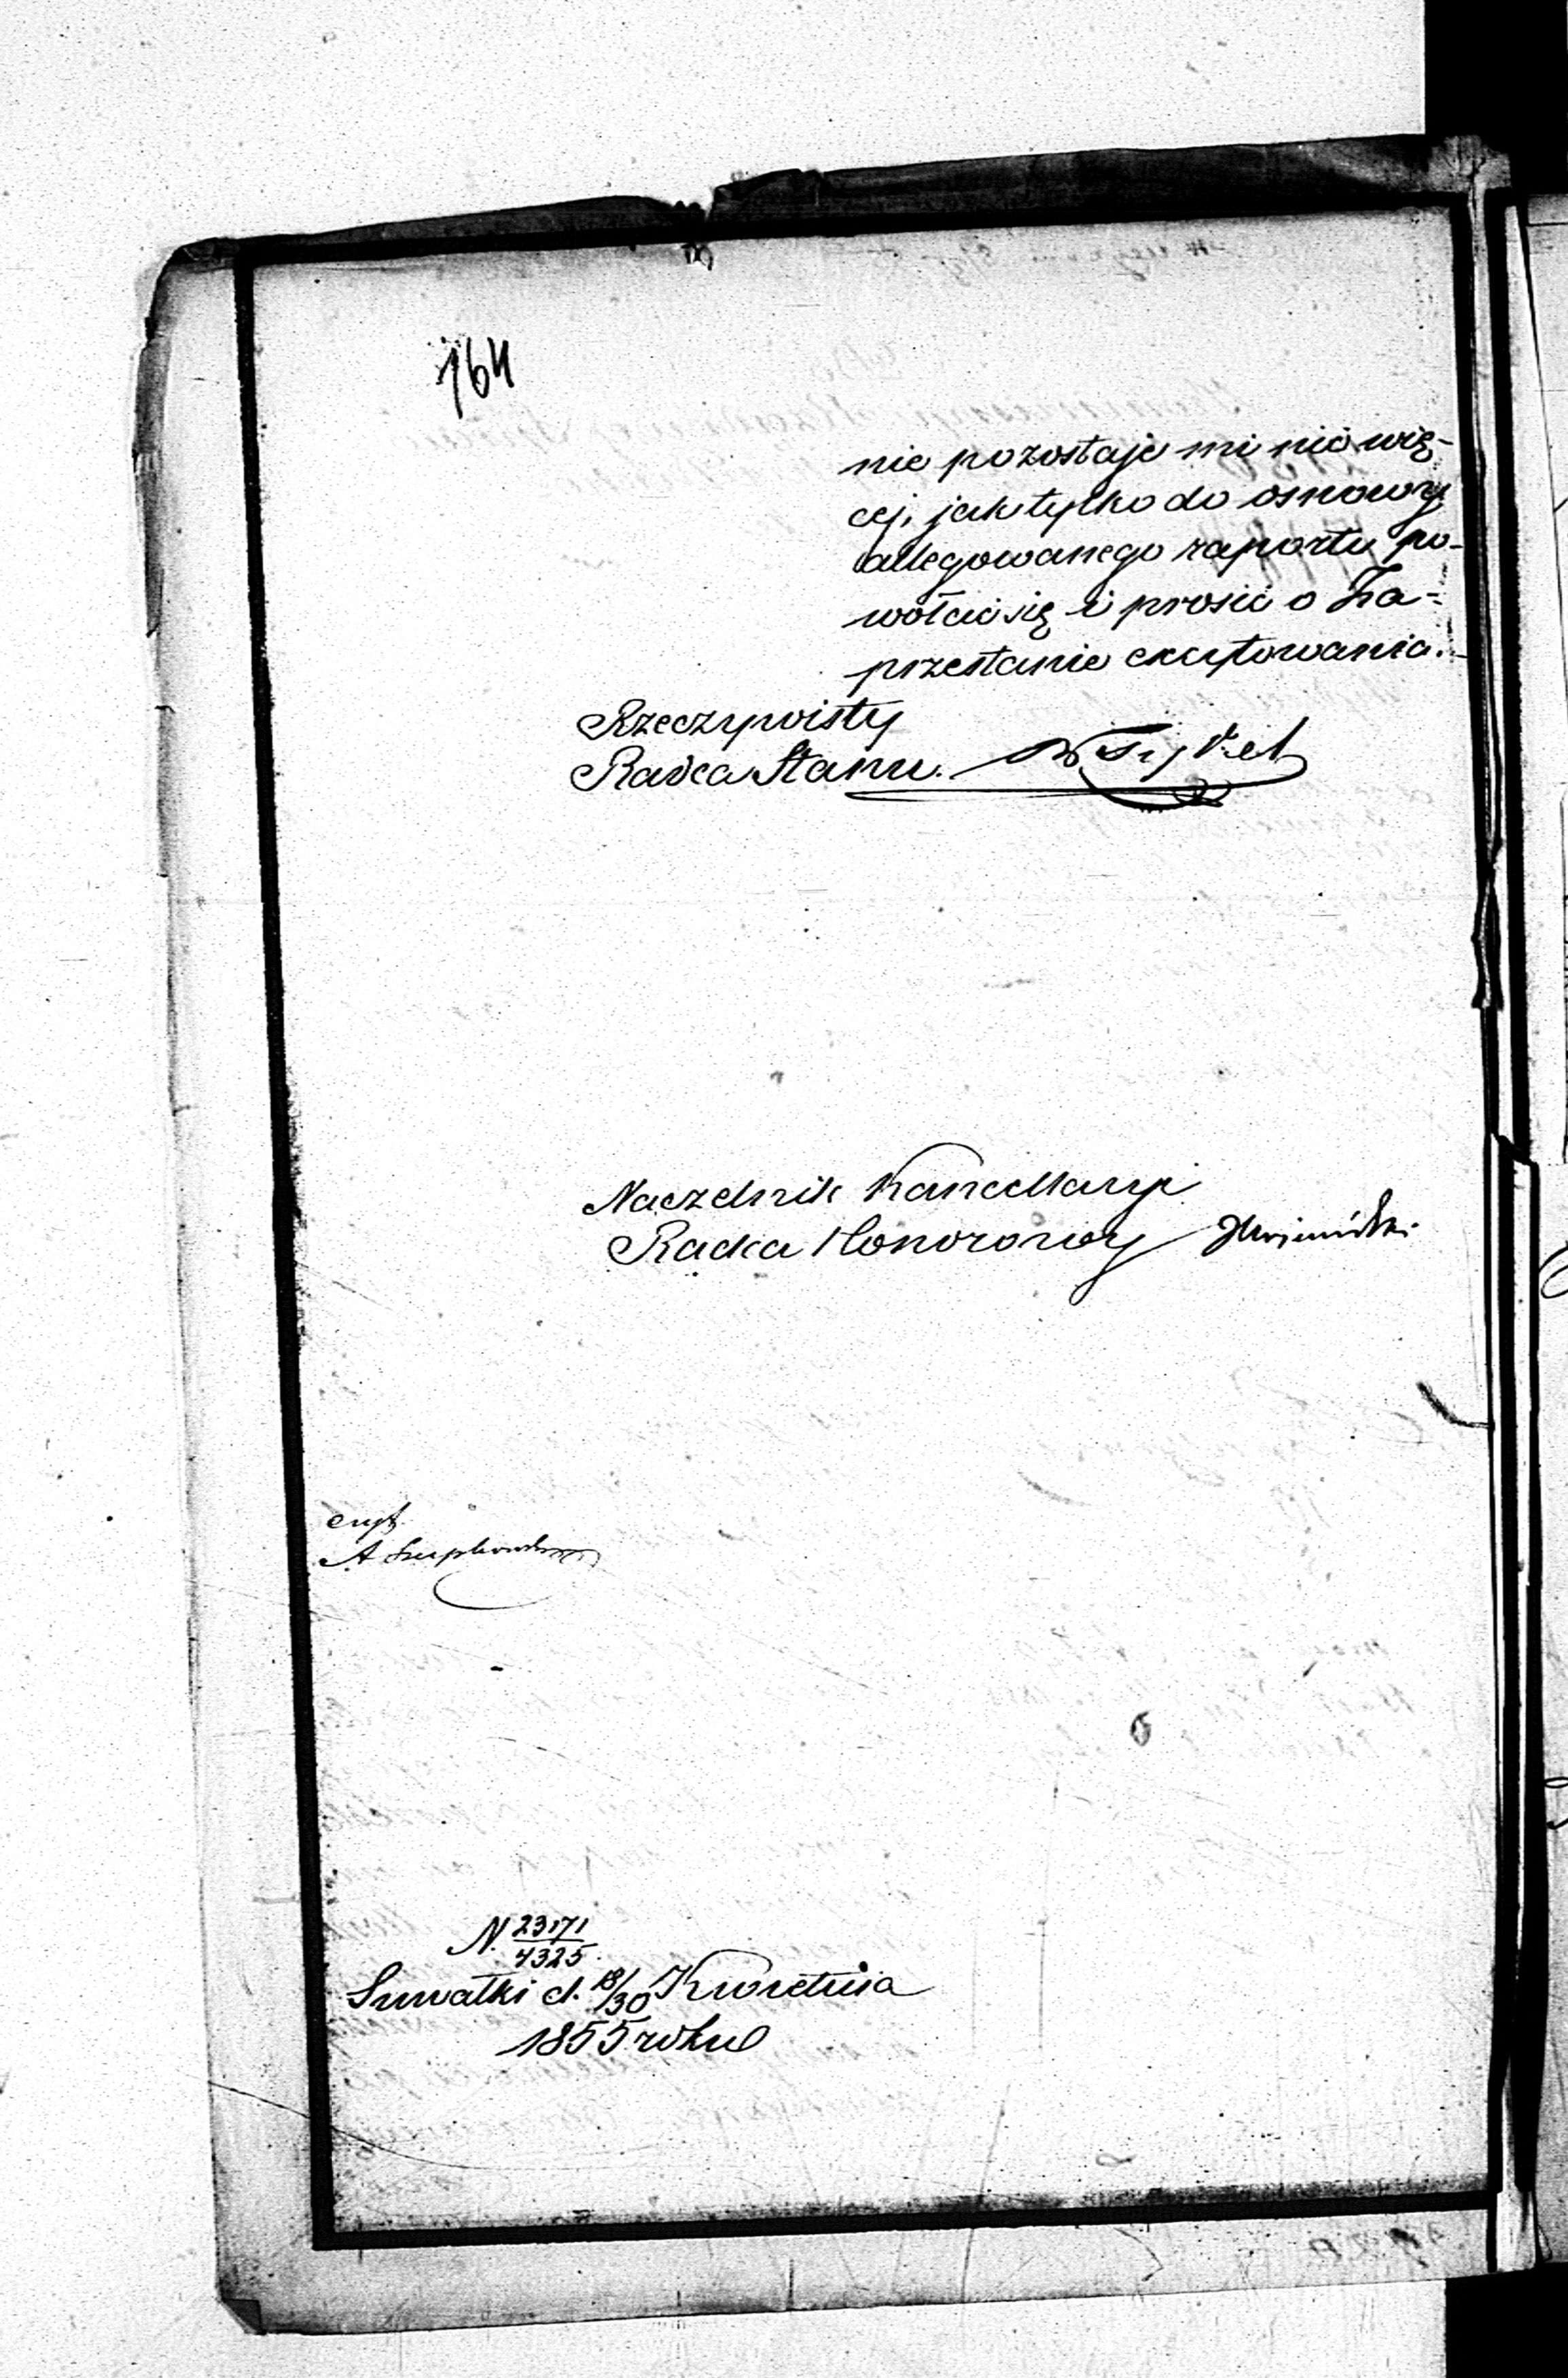 164
nie pozostaje mi nic wię-
cej, jak tylko do osnowy
allegowanego raportu po-
wołać się i prosić o Za-
przestanie excytowania.
Rzeczywisty
Radca Stanu.
Naczelnik Kancellaryi
Radca Honorowy
czyt.
N. 23171/4325.
Suwałki d. 18/30 Kwietnia
1855 roku